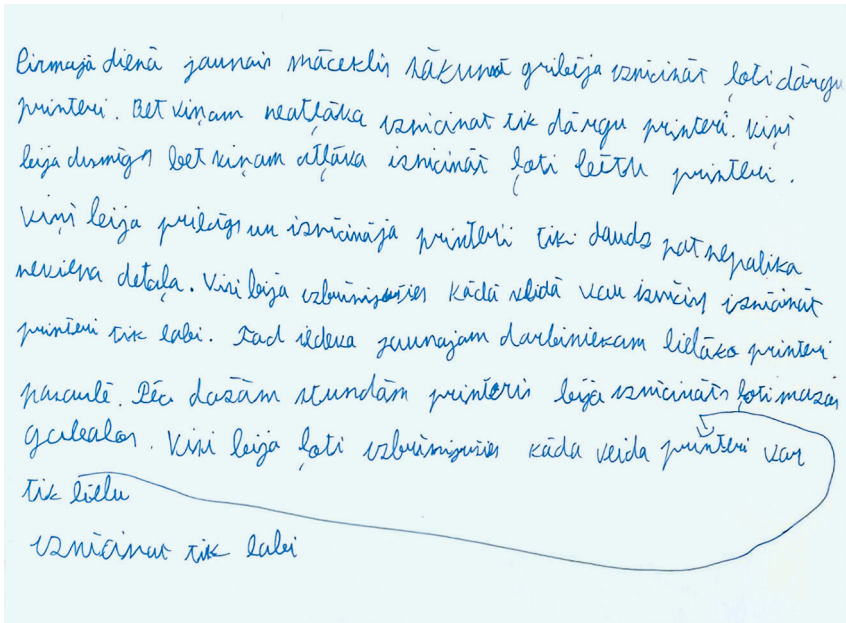 Pirmajā dienā jaunais māceklis sākumā gribēja iznīcināt ļoti dārgu
printeri. Bet viņam neatļāka iznicinat tik dārgu printeri. Viņš
bija dusmīgs bet viņam atļāva iznīcināt ļoti lētu printeri.
Viņš bija priecīgs un iznīcināja printeri tik daudz pat nepalika
neviena detaļa. Visi bija izbrīnījušies kādā veidā var iznīcināt
printeri tik labi. Tad iedeva jaunajam darbiniekam lielāko printeri
pasaulē. Pēc dažām stundām printeris bija iznīcināts ļoti mazos
gabalos. Visi bija ļoti izbrīnījušies kāda veida printeri var
tik lielu
iznīcinat tik labi